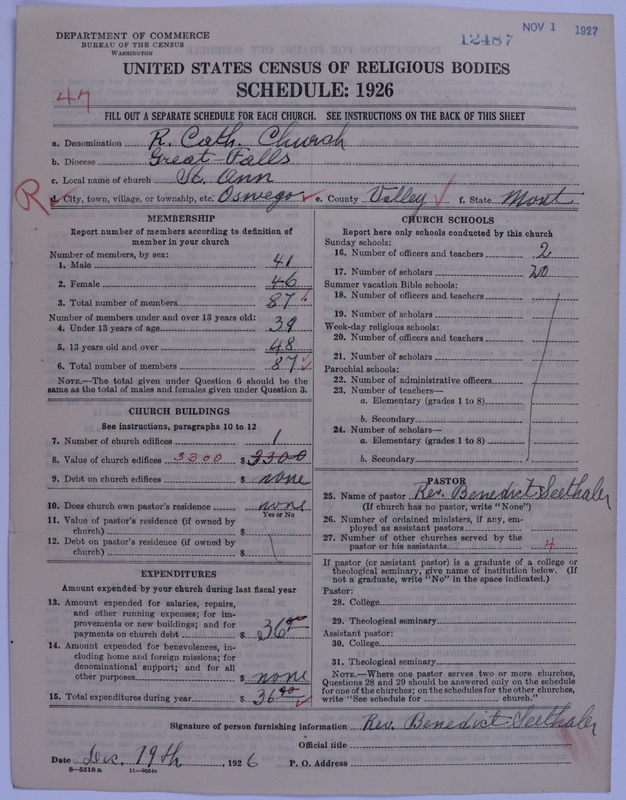 DEPARTMENT OF COMMERCE
BUREAU OF THE CENSUS
WASHINGTON
12487
NOV 1 1927
UNITED STATES CENSUS OF RELIGIOUS BODIES
SCHEDULE: 1926
47
FILL OUT A SEPARATE SCHEDULE FOR EACH CHURCH. SEE INSTRUCTIONS ON THE BACK OF THIS SHEET
a. Denomination R. Cath. Church
b. Diocese Great-Falls
c. Local name of church St. Ann
R
d. City, town, village, or township, etc. Oswego e. County Valley f. State Mont
MEMBERSHIP
Report number of members according to definition of
member in your church
Number of members, by sex:
1. Male 41
2. Female 46
3. Total number of members 87
Number of members under and over 13 years old:
4. Under 13 years of age 39
5. 13 years old and over 48
6. Total number of members 87
NOTE.—The total given under Question 6 should be the
same as the total of males and females given under Question 3.
CHURCH BUILDINGS
See instructions, paragraphs 10 to 12
7. Number of church edifices 1
8. Value of church edifices 3300 $ 3300
9. Debt on church edifices $ none
10. Does church own pastor's residence none
Yes or No
11. Value of pastor's residence (if owned by
church) $
12. Debt on pastor's residence (if owned by
church) $
EXPENDITURES
Amount expended by your church during last fiscal year
13. Amount expended for salaries, repairs,
and other running expenses; for im-
provements or new buildings; and for
payments on church debt $ 36.00
14. Amount expended for benevolences, in-
cluding home and foreign missions; for
denominational support; and for all
other purposes $ none
15. Total expenditures during year $ 36.00
CHURCH SCHOOLS
Report here only schools conducted by this church
Sunday schools:
16. Number of officers and teachers 2
17. Number of scholars 20
Summer vacation Bible schools:
18. Number of officers and teachers
19. Number of scholars
Week-day religious schools:
20. Number of officers and teachers
21. Number of scholars
Parochial schools:
22. Number of administrative officers
23. Number of teachers—
a. Elementary (grades 1 to 8)
b. Secondary
24. Number of scholars—
a. Elementary (grades 1 to 8)
b. Secondary
PASTOR
25. Name of pastor Rev. Benedict Seethaler
(If church has no pastor, write "None")
26. Number of ordained ministers, if any, em-
ployed as assistant pastors
27. Number of other churches served by the
pastor or his assistants 4
If pastor (or assistant pastor) is a graduate of a college or
theological seminary, give name of institution below. (If
not a graduate, write "No" in the space indicated.)
Pastor:
28. College
29. Theological seminary
Assistant pastor:
30. College
31. Theological seminary
NOTE.—Where one pastor serves two or more churches,
Questions 28 and 29 should be answered only on the schedule
for one of the churches; on the schedules for the other churches,
write "See schedule for church."
Signature of person furnishing information Rev. Benedict Seethaler
Official title
Date Dec. 19th, 1926 P. O. Address
8—5518a 11—9054